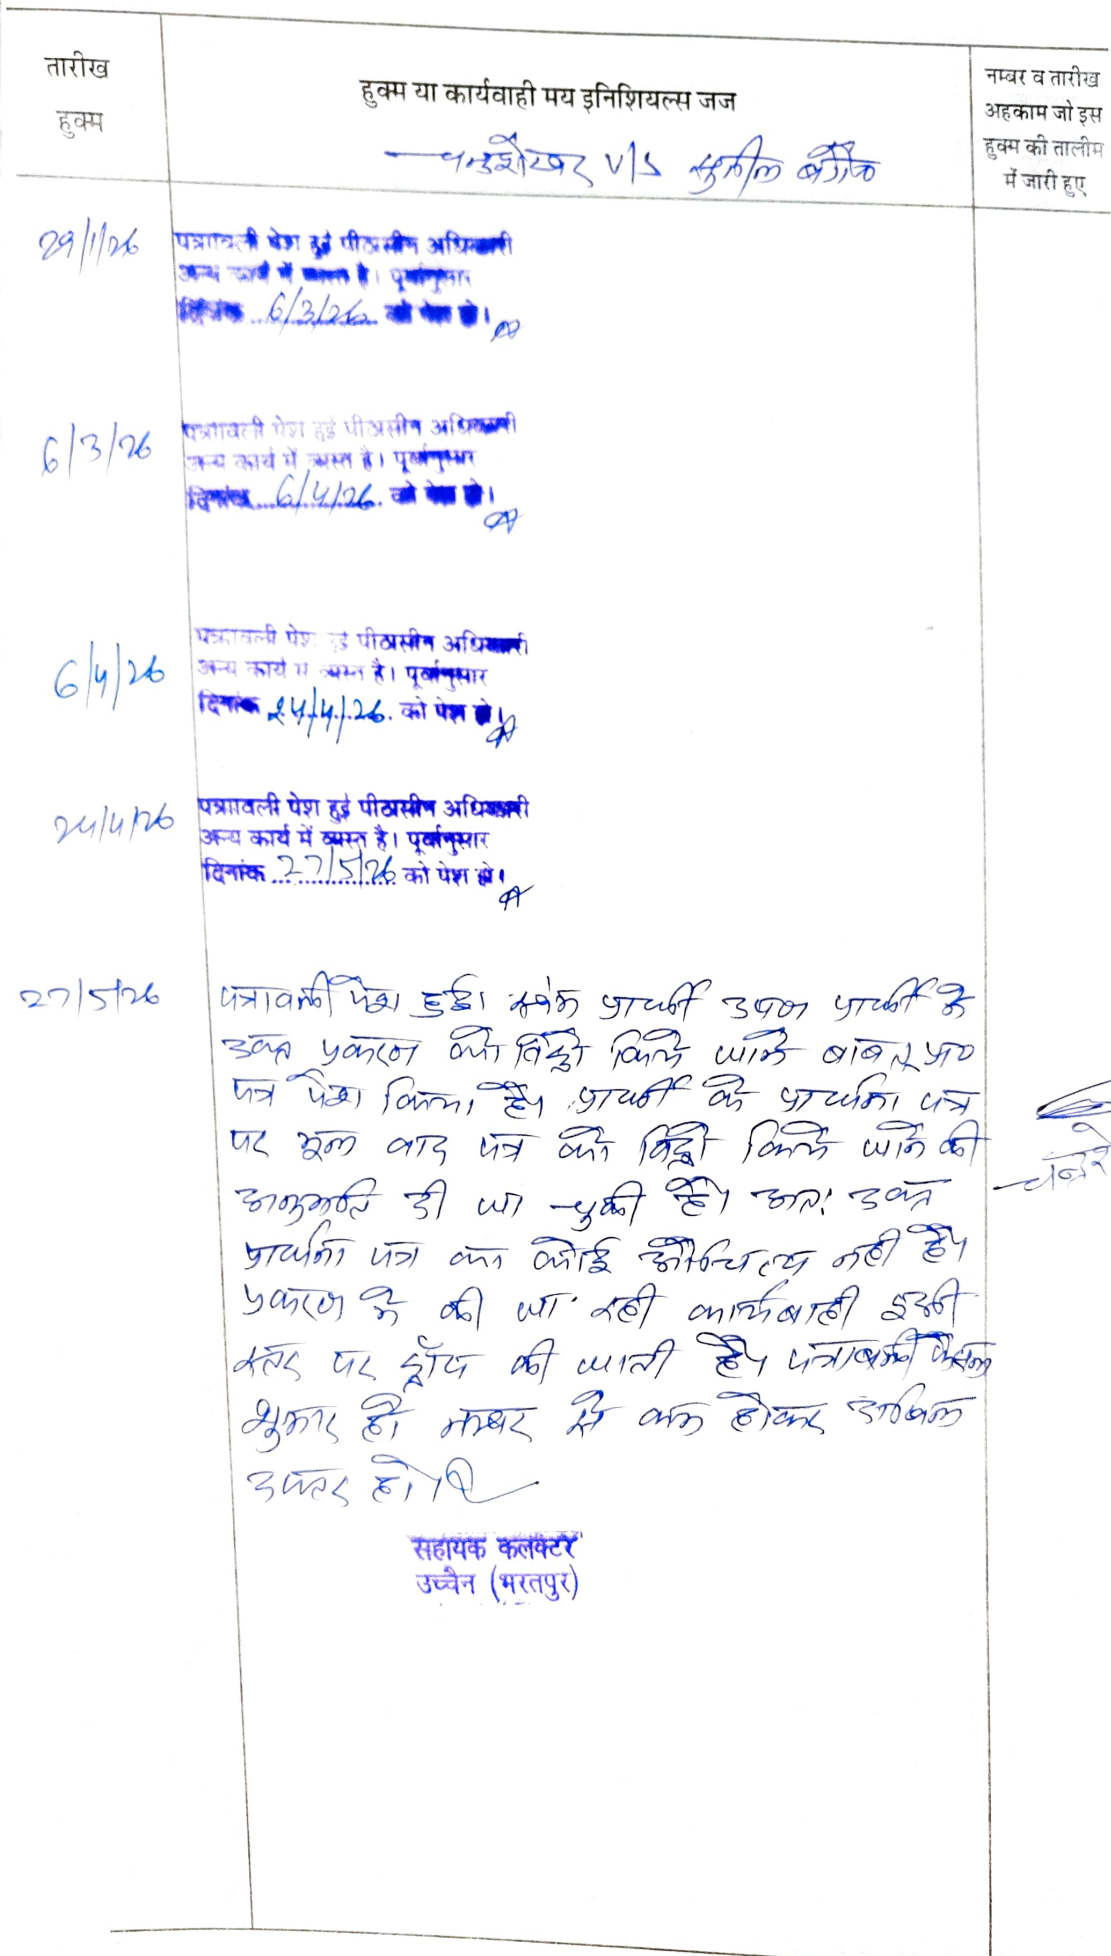 तारीख
हुक्म
हुक्म या कार्यवाही मय इनिशियल्स जज
नम्बर व तारीख
अहकाम जो इस
हुक्म की तालीम
में जारी हुए
चन्द्रशेखर V/S सुनील
29/1/26
पत्रावली पेश हुई पीठासीन अधिकारी
अन्य कार्य में व्यस्त है। पूर्वानुसार
दिनांक 6/3/26 को पेश हो।
6/3/26
पत्रावली पेश हुई पीठासीन अधिकारी
अन्य कार्य में व्यस्त है। पूर्वानुसार
दिनांक 6/4/26 को पेश हो।
6/4/26
पत्रावली पेश हुई पीठासीन अधिकारी
अन्य कार्य में व्यस्त है। पूर्वानुसार
दिनांक 24/4/26 को पेश हो।
24/4/26
पत्रावली पेश हुई पीठासीन अधिकारी
अन्य कार्य में व्यस्त है। पूर्वानुसार
दिनांक 27/5/26 को पेश हो।
27/5/26
पत्रावली पेश हुई। प्रार्थी उप० प्रार्थी ने
उक्त प्रकरण को विड्रो किये जाने बाबत् प्रा०
पत्र पेश किया है। प्रार्थी के प्रार्थना पत्र
पर मूल वाद पत्र को विड्रो किये जाने की
अनुमति दी जा चुकी है। अतः उक्त
प्रार्थना पत्र का कोई औचित्य नहीं है।
प्रकरण में की जा रही कार्यवाही इसी
स्तर पर ड्रॉप की जाती है। पत्रावली फैसल
शुमार हो नम्बर से कम होकर दाखिल
दफ्तर हो।
सहायक कलक्टर
उच्चैन (भरतपुर)